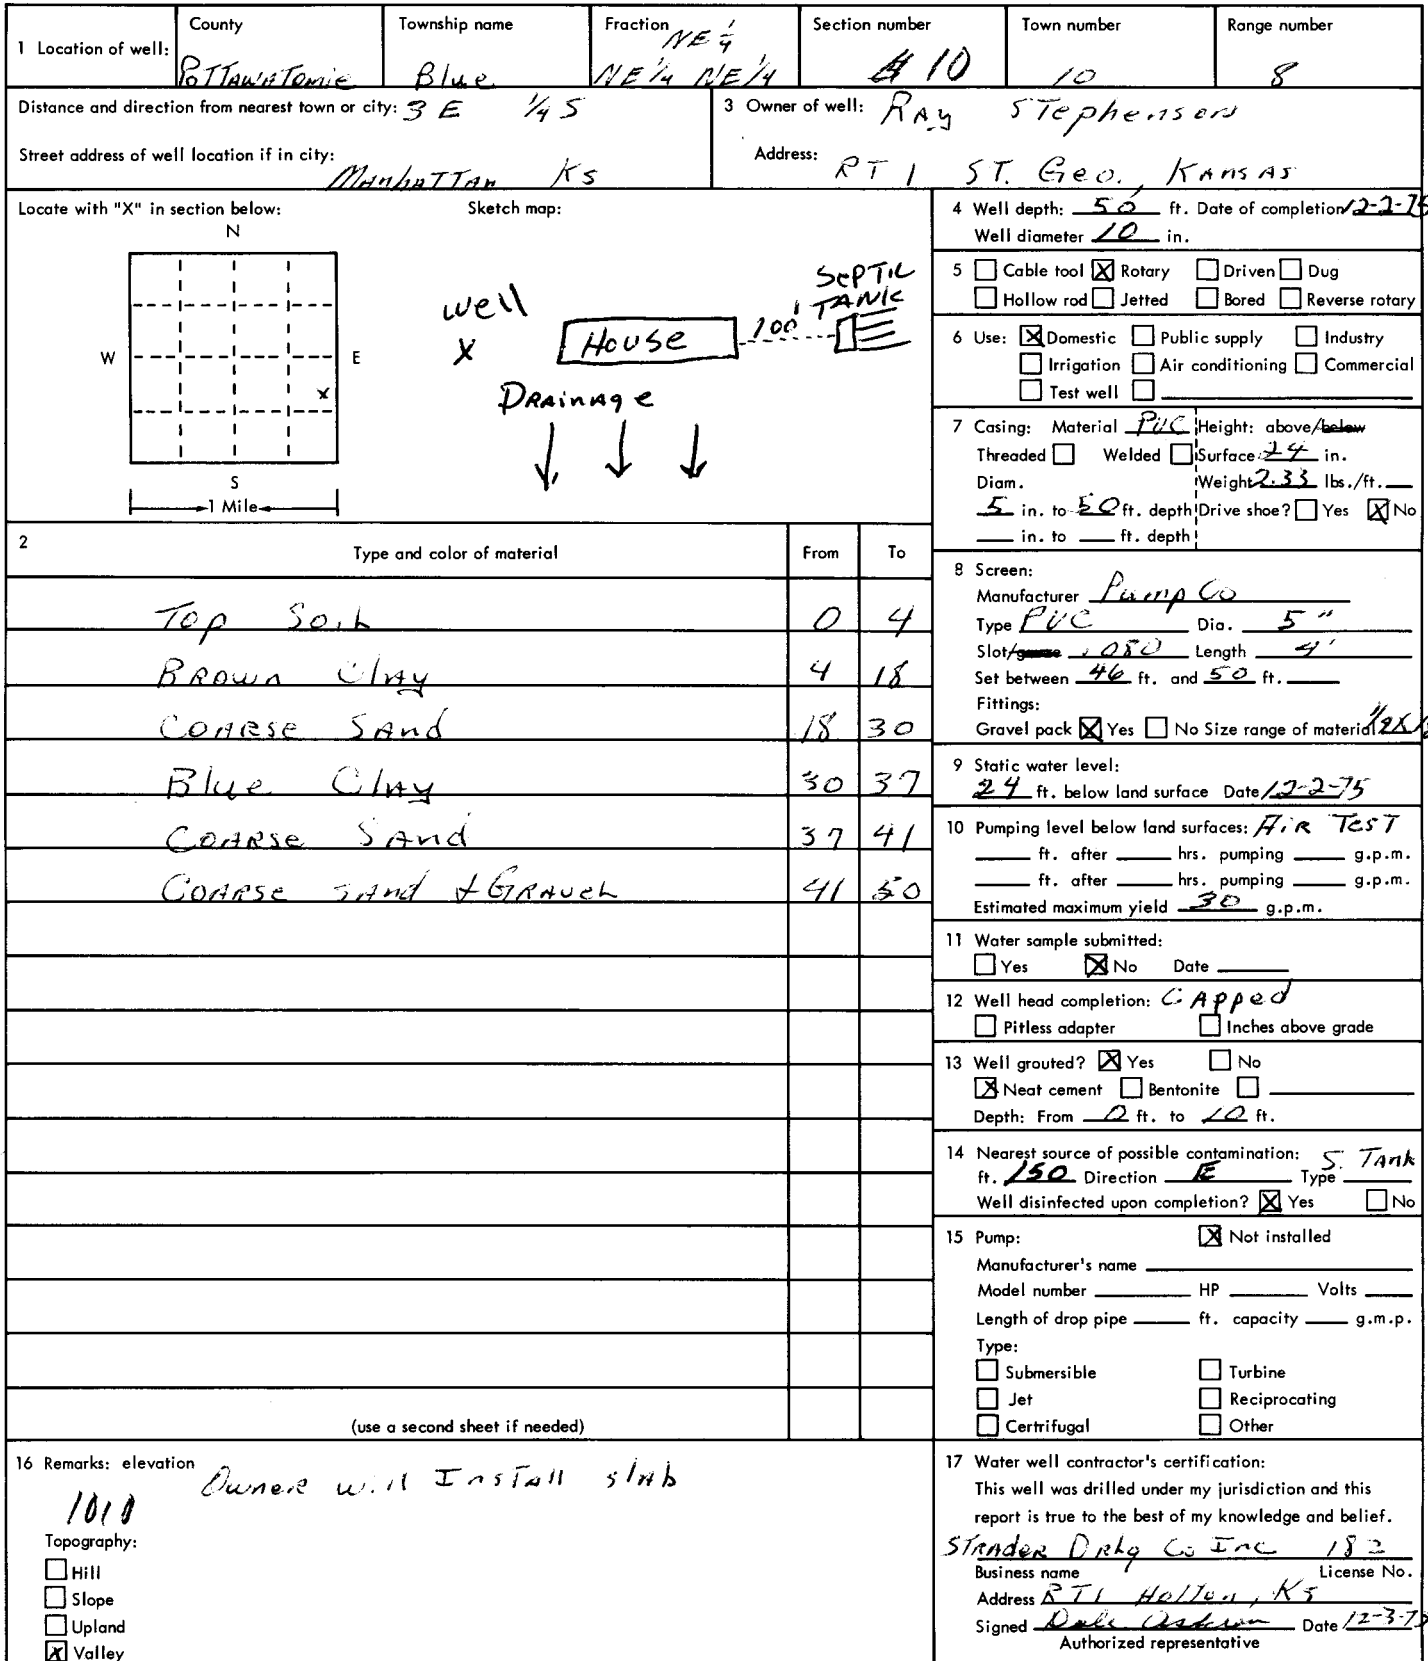 1 Location of well:
County
POTTAWATOMIE
Township name
Blue
Fraction
NE 1/4
NE 1/4 NE 1/4
Section number
10
Town number
10
Range number
8
Distance and direction from nearest town or city: 3 E 1/4 S
Street address of well location if in city:
Manhattan Ks
3 Owner of well: Ray Stephenson
Address: RT 1 ST. Geo. Kansas
Locate with "X" in section below:
Sketch map:
N
W
E
S
X
1 Mile
well
X
House
100'
SEPTIC
TANK
Drainage
4 Well depth: 50 ft. Date of completion 12-2-75
Well diameter 10 in.
5 Cable tool X Rotary Driven Dug
Hollow rod Jetted Bored Reverse rotary
6 Use: X Domestic Public supply Industry
Irrigation Air conditioning Commercial
Test well
7 Casing: Material PVC Height: above/below
Threaded Welded Surface 24 in.
Diam. Weight 2.33 lbs./ft.
5 in. to 50 ft. depth Drive shoe? Yes X No
in. to ft. depth
2
Type and color of material From To
Top Soil 0 4
Brown Clay 4 18
Coarse Sand 18 30
Blue Clay 30 37
Coarse Sand 37 41
Coarse sand & Gravel 41 50
(use a second sheet if needed)
8 Screen:
Manufacturer Pump Co
Type PVC Dia. 5"
Slot/gauze .080 Length 4'
Set between 46 ft. and 50 ft.
Fittings:
Gravel pack X Yes No Size range of material
9 Static water level:
24 ft. below land surface Date 12-2-75
10 Pumping level below land surfaces: Air Test
ft. after hrs. pumping g.p.m.
ft. after hrs. pumping g.p.m.
Estimated maximum yield 30 g.p.m.
11 Water sample submitted:
Yes X No Date
12 Well head completion: Capped
Pitless adapter Inches above grade
13 Well grouted? X Yes No
X Neat cement Bentonite
Depth: From 0 ft. to 10 ft.
14 Nearest source of possible contamination: S. Tank
ft. 150 Direction E Type
Well disinfected upon completion? X Yes No
15 Pump: X Not installed
Manufacturer's name
Model number HP Volts
Length of drop pipe ft. capacity g.m.p.
Type:
Submersible Turbine
Jet Reciprocating
Certrifugal Other
16 Remarks: elevation
Owner will Install slab
1010
Topography:
Hill
Slope
Upland
X Valley
17 Water well contractor's certification:
This well was drilled under my jurisdiction and this
report is true to the best of my knowledge and belief.
Strader Drlg Co Inc 182
Business name License No.
Address RT1 Holton, Ks
Signed Dale Date 12-3-7
Authorized representative